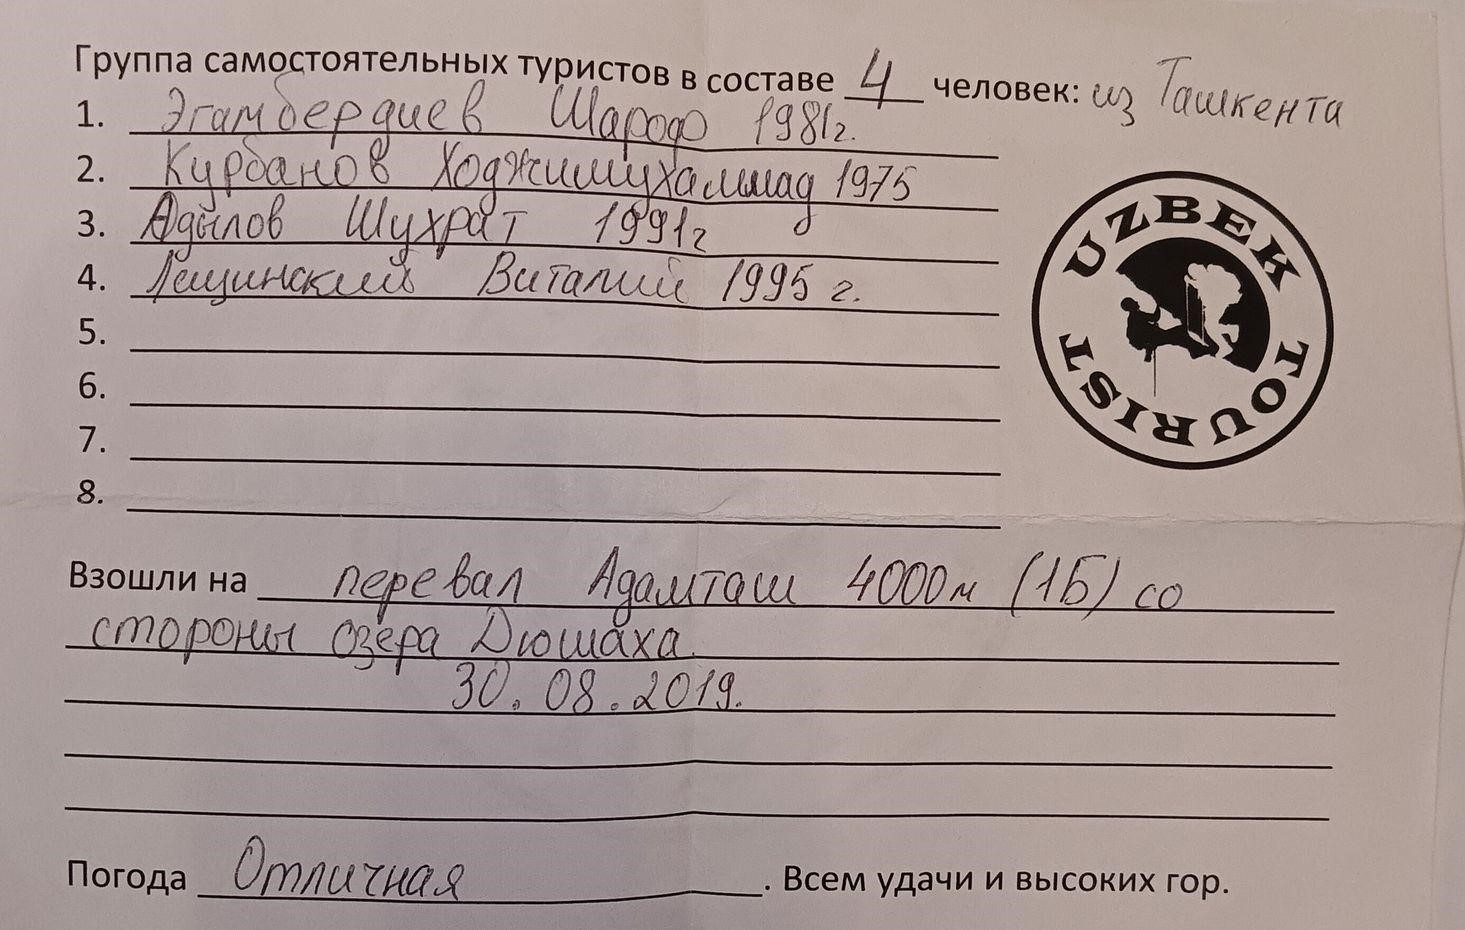 Группа самостоятельных туристов в составе 4 человек: из Ташкента
1. Эгамбердиев Шароф 1981г.
2. Курбанов Ходжимухаммад 1975
3. Адылов Шухрат 1991г
4. Лещинский Виталий 1995 г.
5.
6.
7.
8.
UZBEK TOURIST
Взошли на перевал Адамташ 4000м (1Б) со
стороны озера Дюшаха.
30.08.2019.
Погода Отличная. Всем удачи и высоких гор.